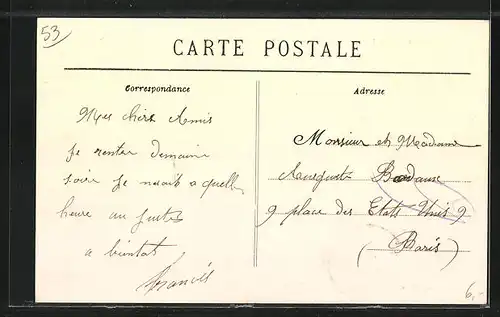 53
CARTE POSTALE
Correspondance
Adresse
Mes chers Amis
je rentre demain
soir je
a quelle
heure au juste
a bientot
Francis
Monsieur et Madame
Auguste
9 place des Etats Unis 9
(Paris)
6,-